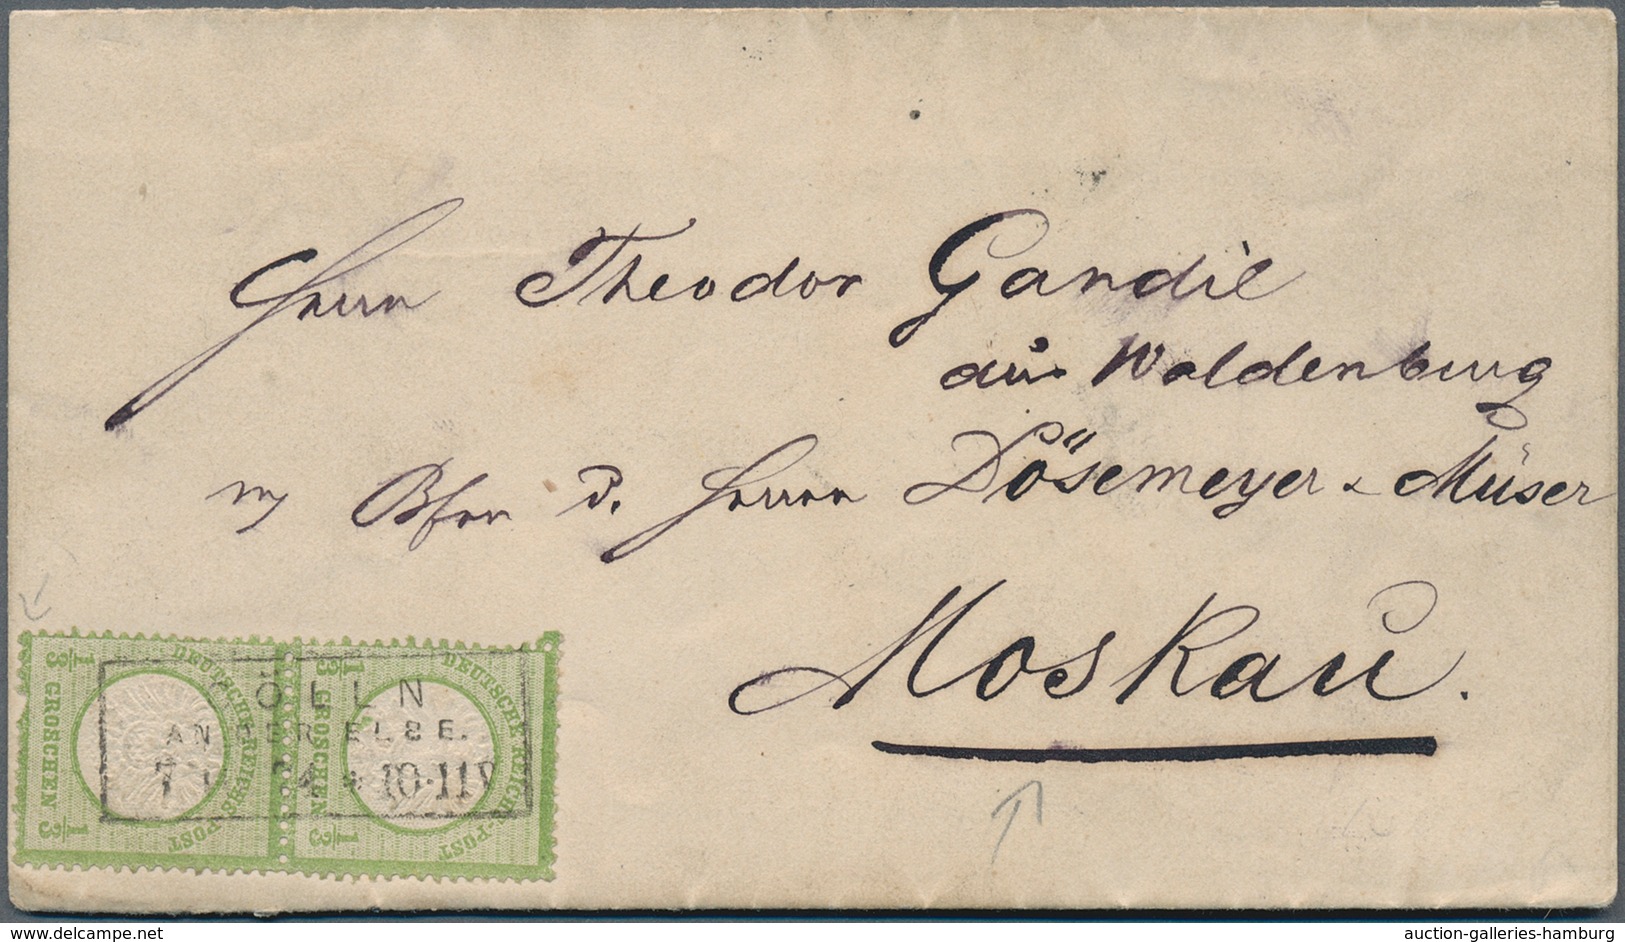 Herrn Theodor Gandil
aus Waldenburg
Adr. d. Herren Dösemeyer & Müser
Moskau.
1/3 GROSCHEN 1/3
DEUTSCHE REICHS-POST
1/3 GROSCHEN 1/3
DEUTSCHE REICHS-POST
ÖLLN
AN DER ELBE.
7 74 * 10-11V
delcampe.net
auction-galleries-hamburg